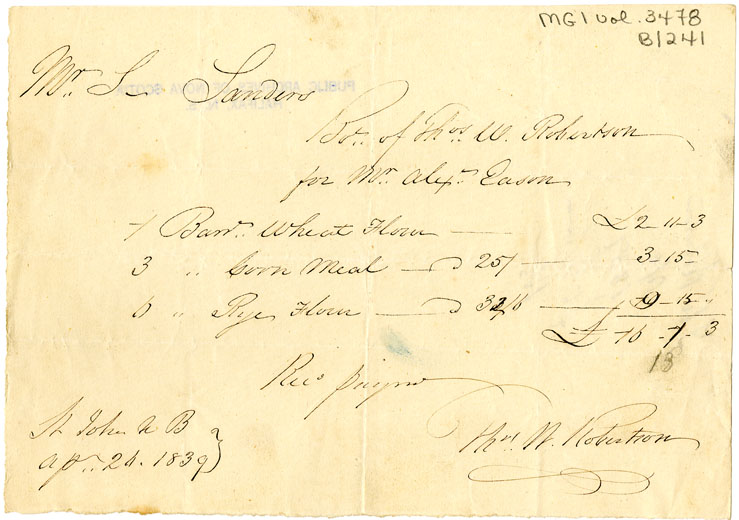 MG1 vol. 3478
B1241
PUBLIC ARCHIVES OF NOVA SCOTIA
HALIFAX, N.S.
Mr. S Sanders
Bot. of Thos. W. Robertson
for Mr. Alexr. Eason
1 Barrl. Wheat Flour — £2-11-3
3 " Corn Meal — 25/ — 3-15-
6 " Rye Flour — 32/6 — 9-15-"
£16-1-3
13
Recd paymt
St John N B
Apr. 24. 1839
Thos. W. Robertson